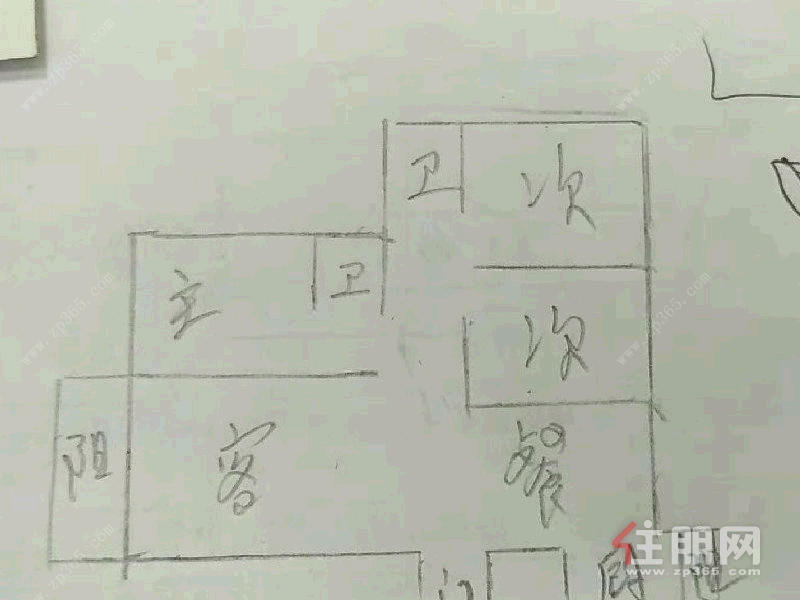 卫
次
主
卫
次
阳
客
餐
门
厨
阳
住朋网
www.zp365.com